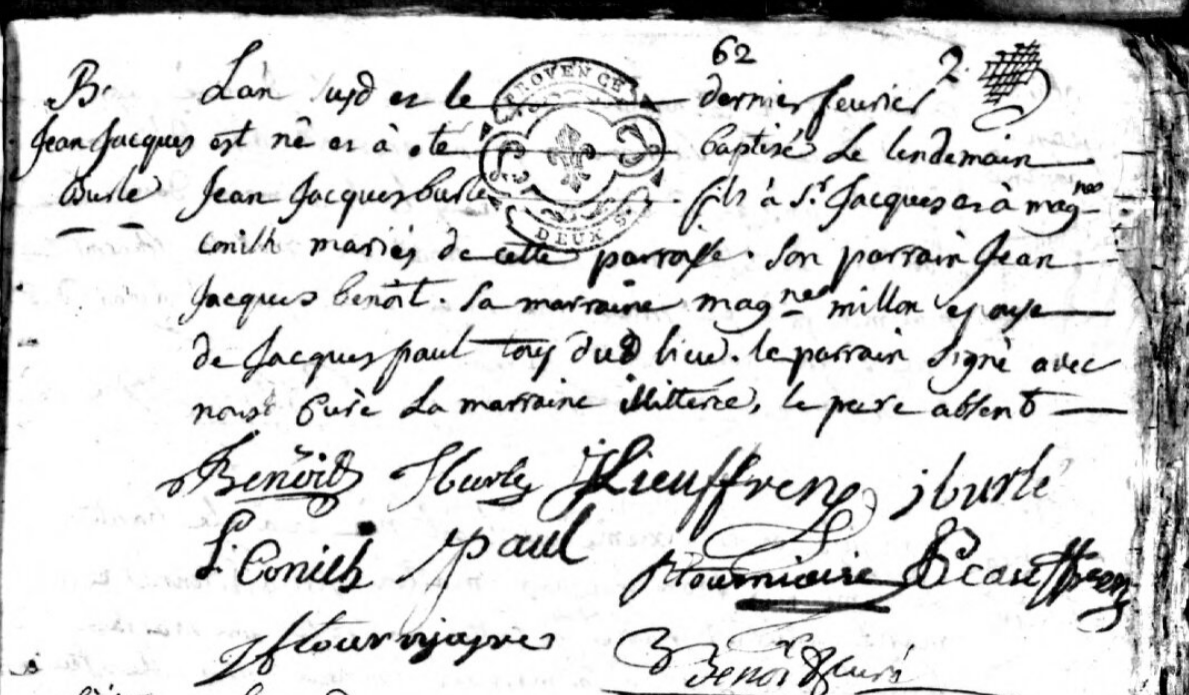 62
2.
B.
Jean Jacques
Burle
L'an susd et le dernier fevrier
est né et à eté baptisé Le lendemain
Jean Jacques burle fils à Sr. Jacques et à magnes
conilh mariés de cette parroisse. Son parrain Jean
Jacques benoit. Sa marraine magnes millon epouse
de Jacques paul tous dud lieu. le parrain signé avec
nous Curé La marraine illitterée, le pere absent
PROVENCE
DEUX S.
Benoit Jburle Lieuffren jburle
Conilh paul fournieire
Benoit Curé